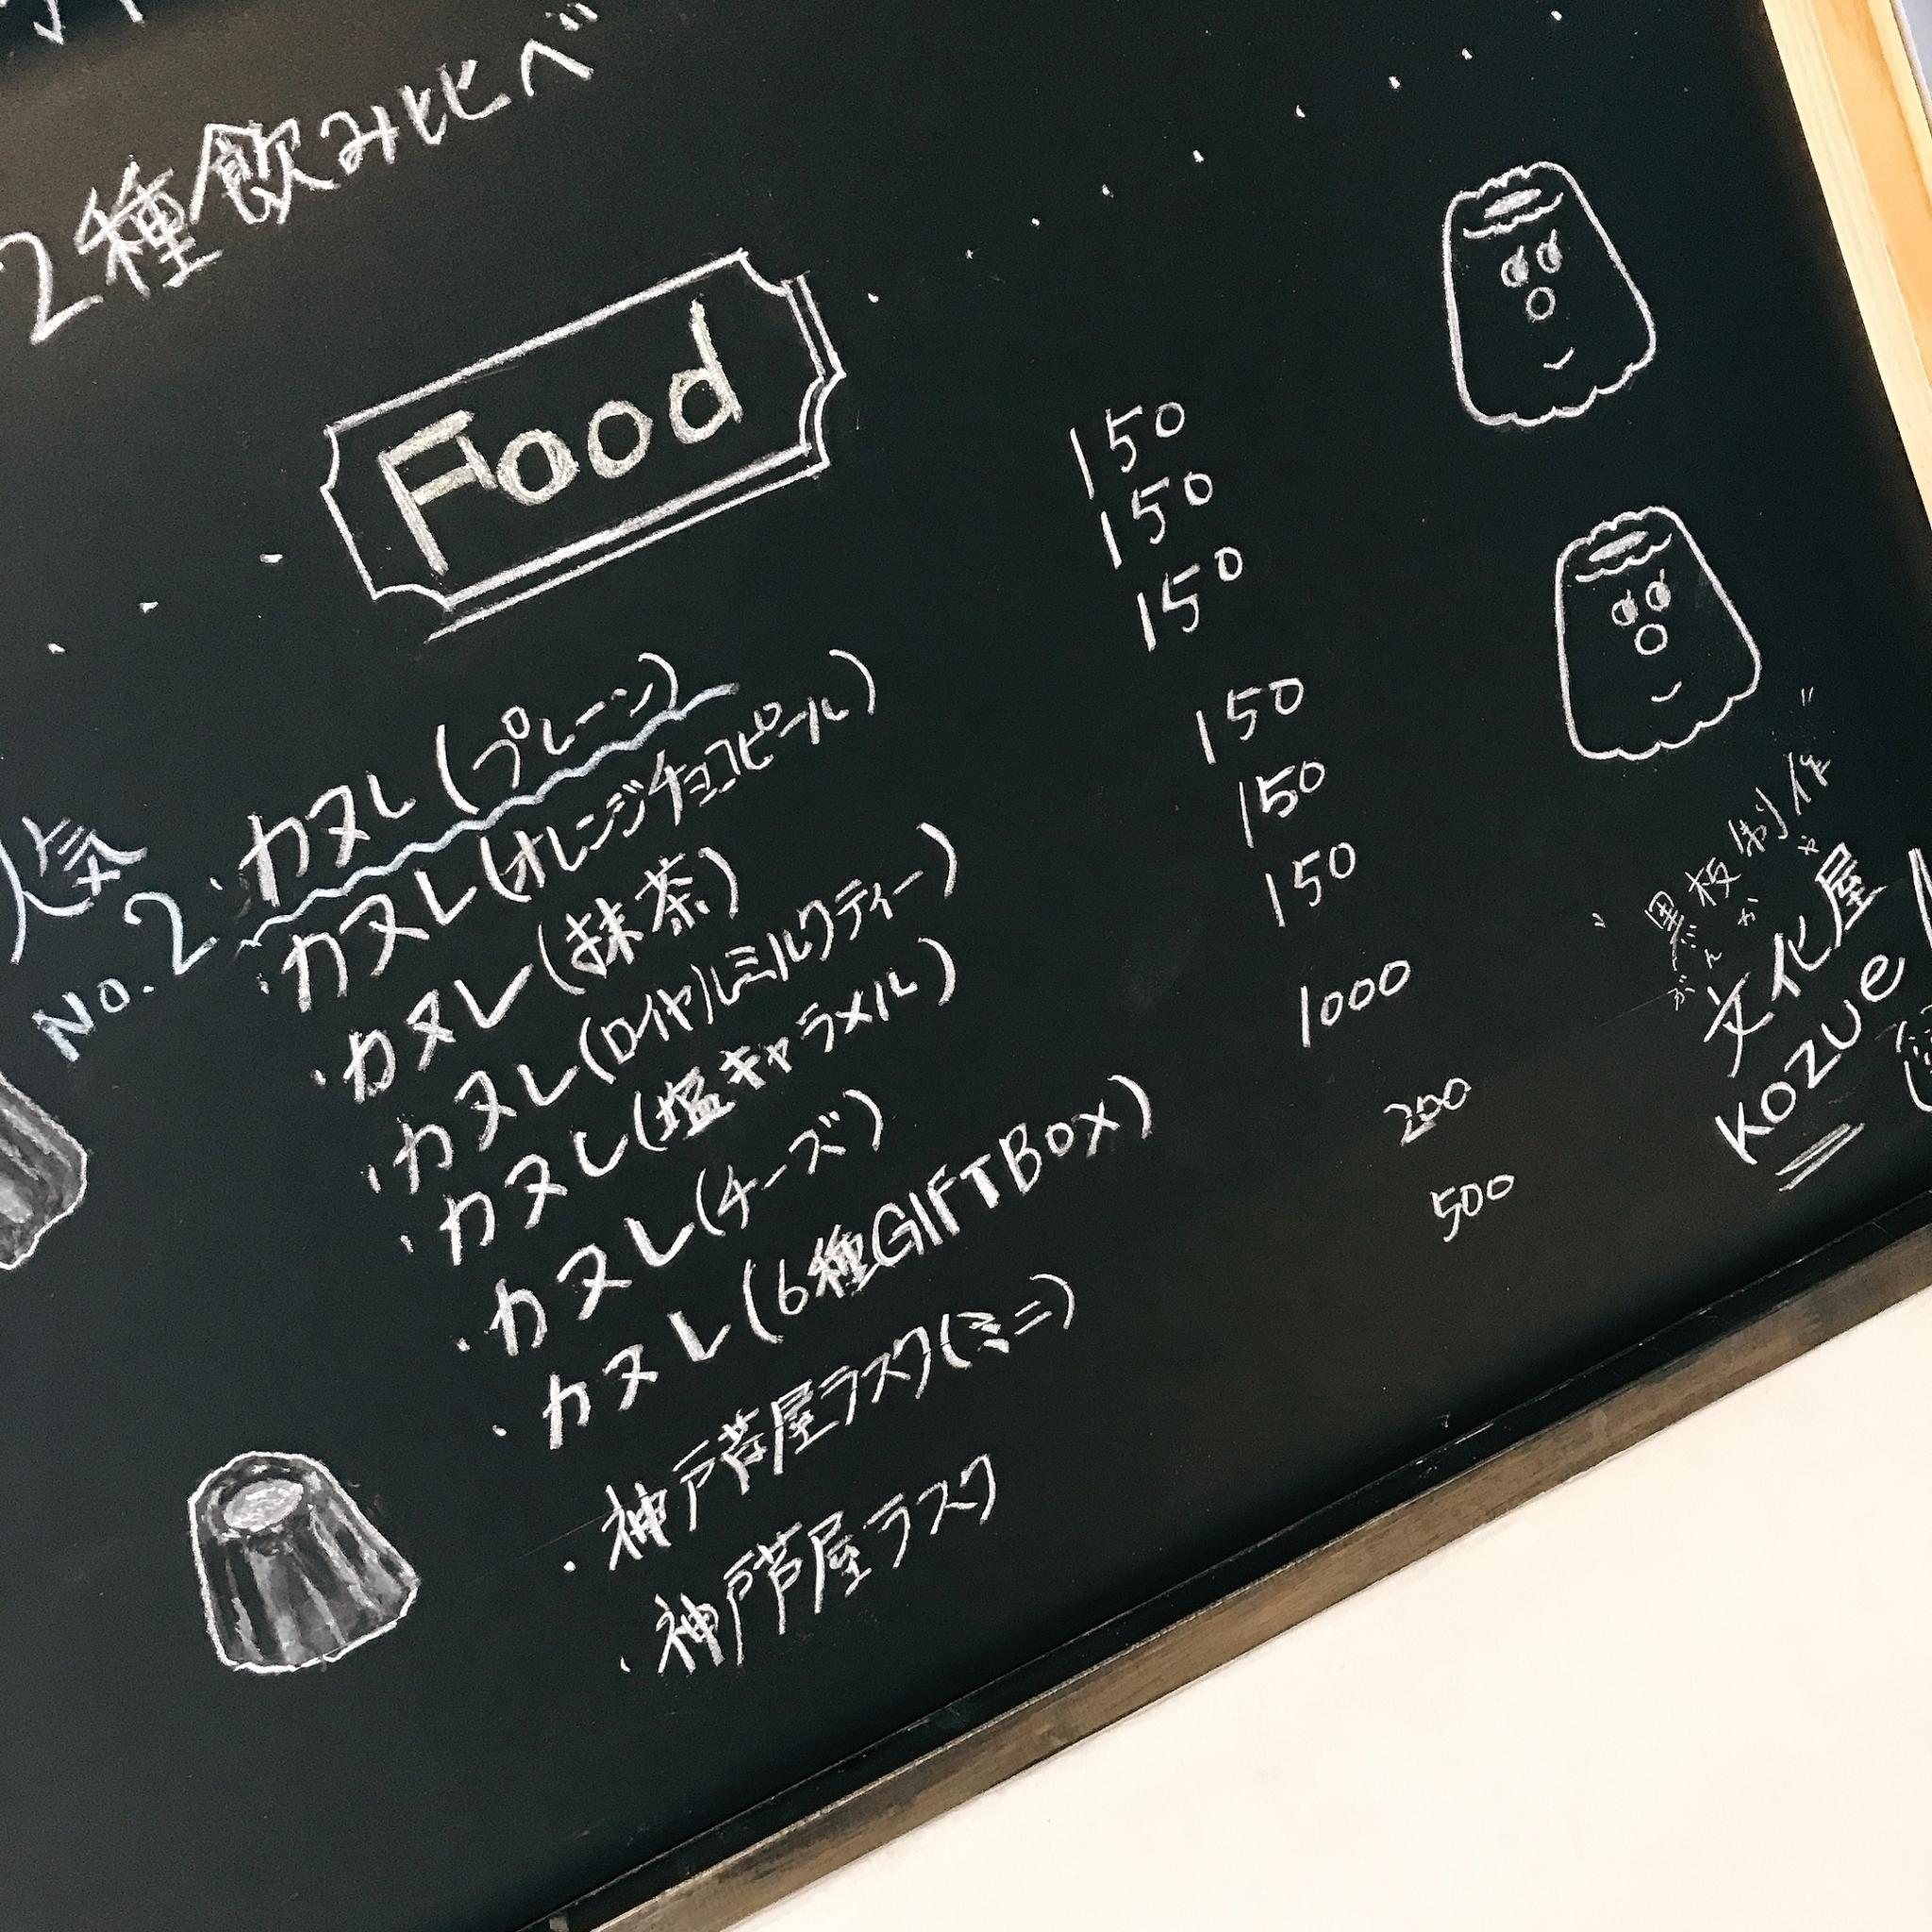 2種飲み比べ
Food
人気
No.2
・カヌレ(プレーン) 150
・カヌレ(オレンジチョコピール) 150
・カヌレ(抹茶) 150
・カヌレ(ロイヤルミルクティー) 150
・カヌレ(塩キャラメル) 150
・カヌレ(チーズ) 150
・カヌレ(6種GIFTBOX) 1000
・神戸芦屋ラスク(ミニ) 200
・神戸芦屋ラスク 500
"黒板制作"
ぶんか や
文化屋
Kozue